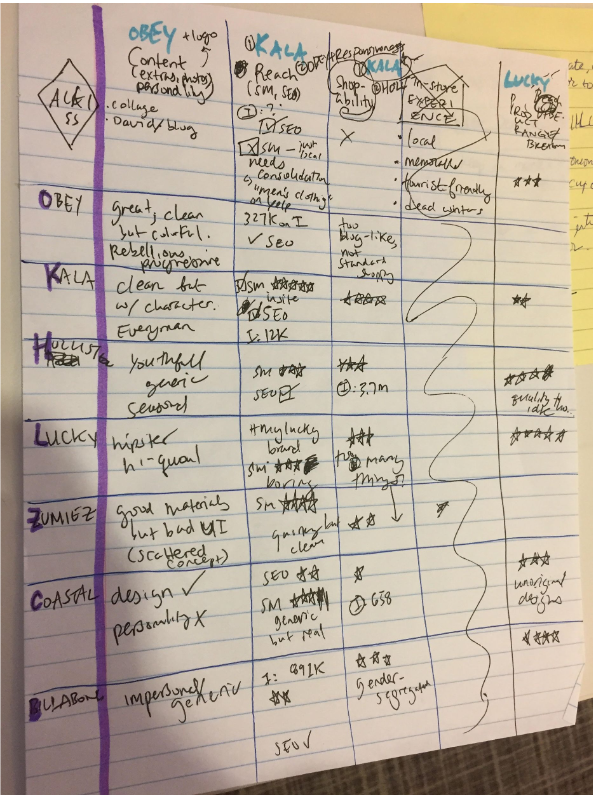 OBEY +logo
Content
(extras, photos)
personality
• collage
• David/blog
① KALA
Reach
(SM, SEO)
I: ?
SEO
X SM — just
needs
consolidation
"men's clothing"
+ Responsiveness
KALA
Shop-
ability
X
in-store
EXPERI
ENCE
• local
• memorable
• tourist-friendly
• dead winters
LUCKY
PROD
UCT
RANGE/
☆☆☆
OBEY
great, clean
but colorful.
Rebellious,
progressive
327K on I
✓ SEO
too
blog-like,
not
standard
KALA
clean but
w/ character.
Everyman
SM ☆☆☆☆☆
SEO
I: 12K
☆☆☆☆
☆☆
HOLLISTE
youthful
generic
seasonal
SM ☆☆☆
SEO ☑
☆☆☆
I: 3.7m
☆☆☆☆
quality
LUCKY
hipster
hi-qual
#mylucky
brand
SM ☆☆☆
boring
☆☆☆
too
many
things
☆☆☆☆☆
ZUMIEZ
good materials
but bad UI
(scattered
concept)
SM ☆☆☆☆
quirky but
clean
☆☆
COASTAL
design ✓
personality X
SEO ☆☆
SM ☆☆☆
generic
but real
☆
I: 638
☆☆☆
unoriginal
designs
BILLABONG
impersonal/
generic
I: 891K
☆☆
SEO ✓
☆☆☆
gender-
segregated
☆☆☆☆